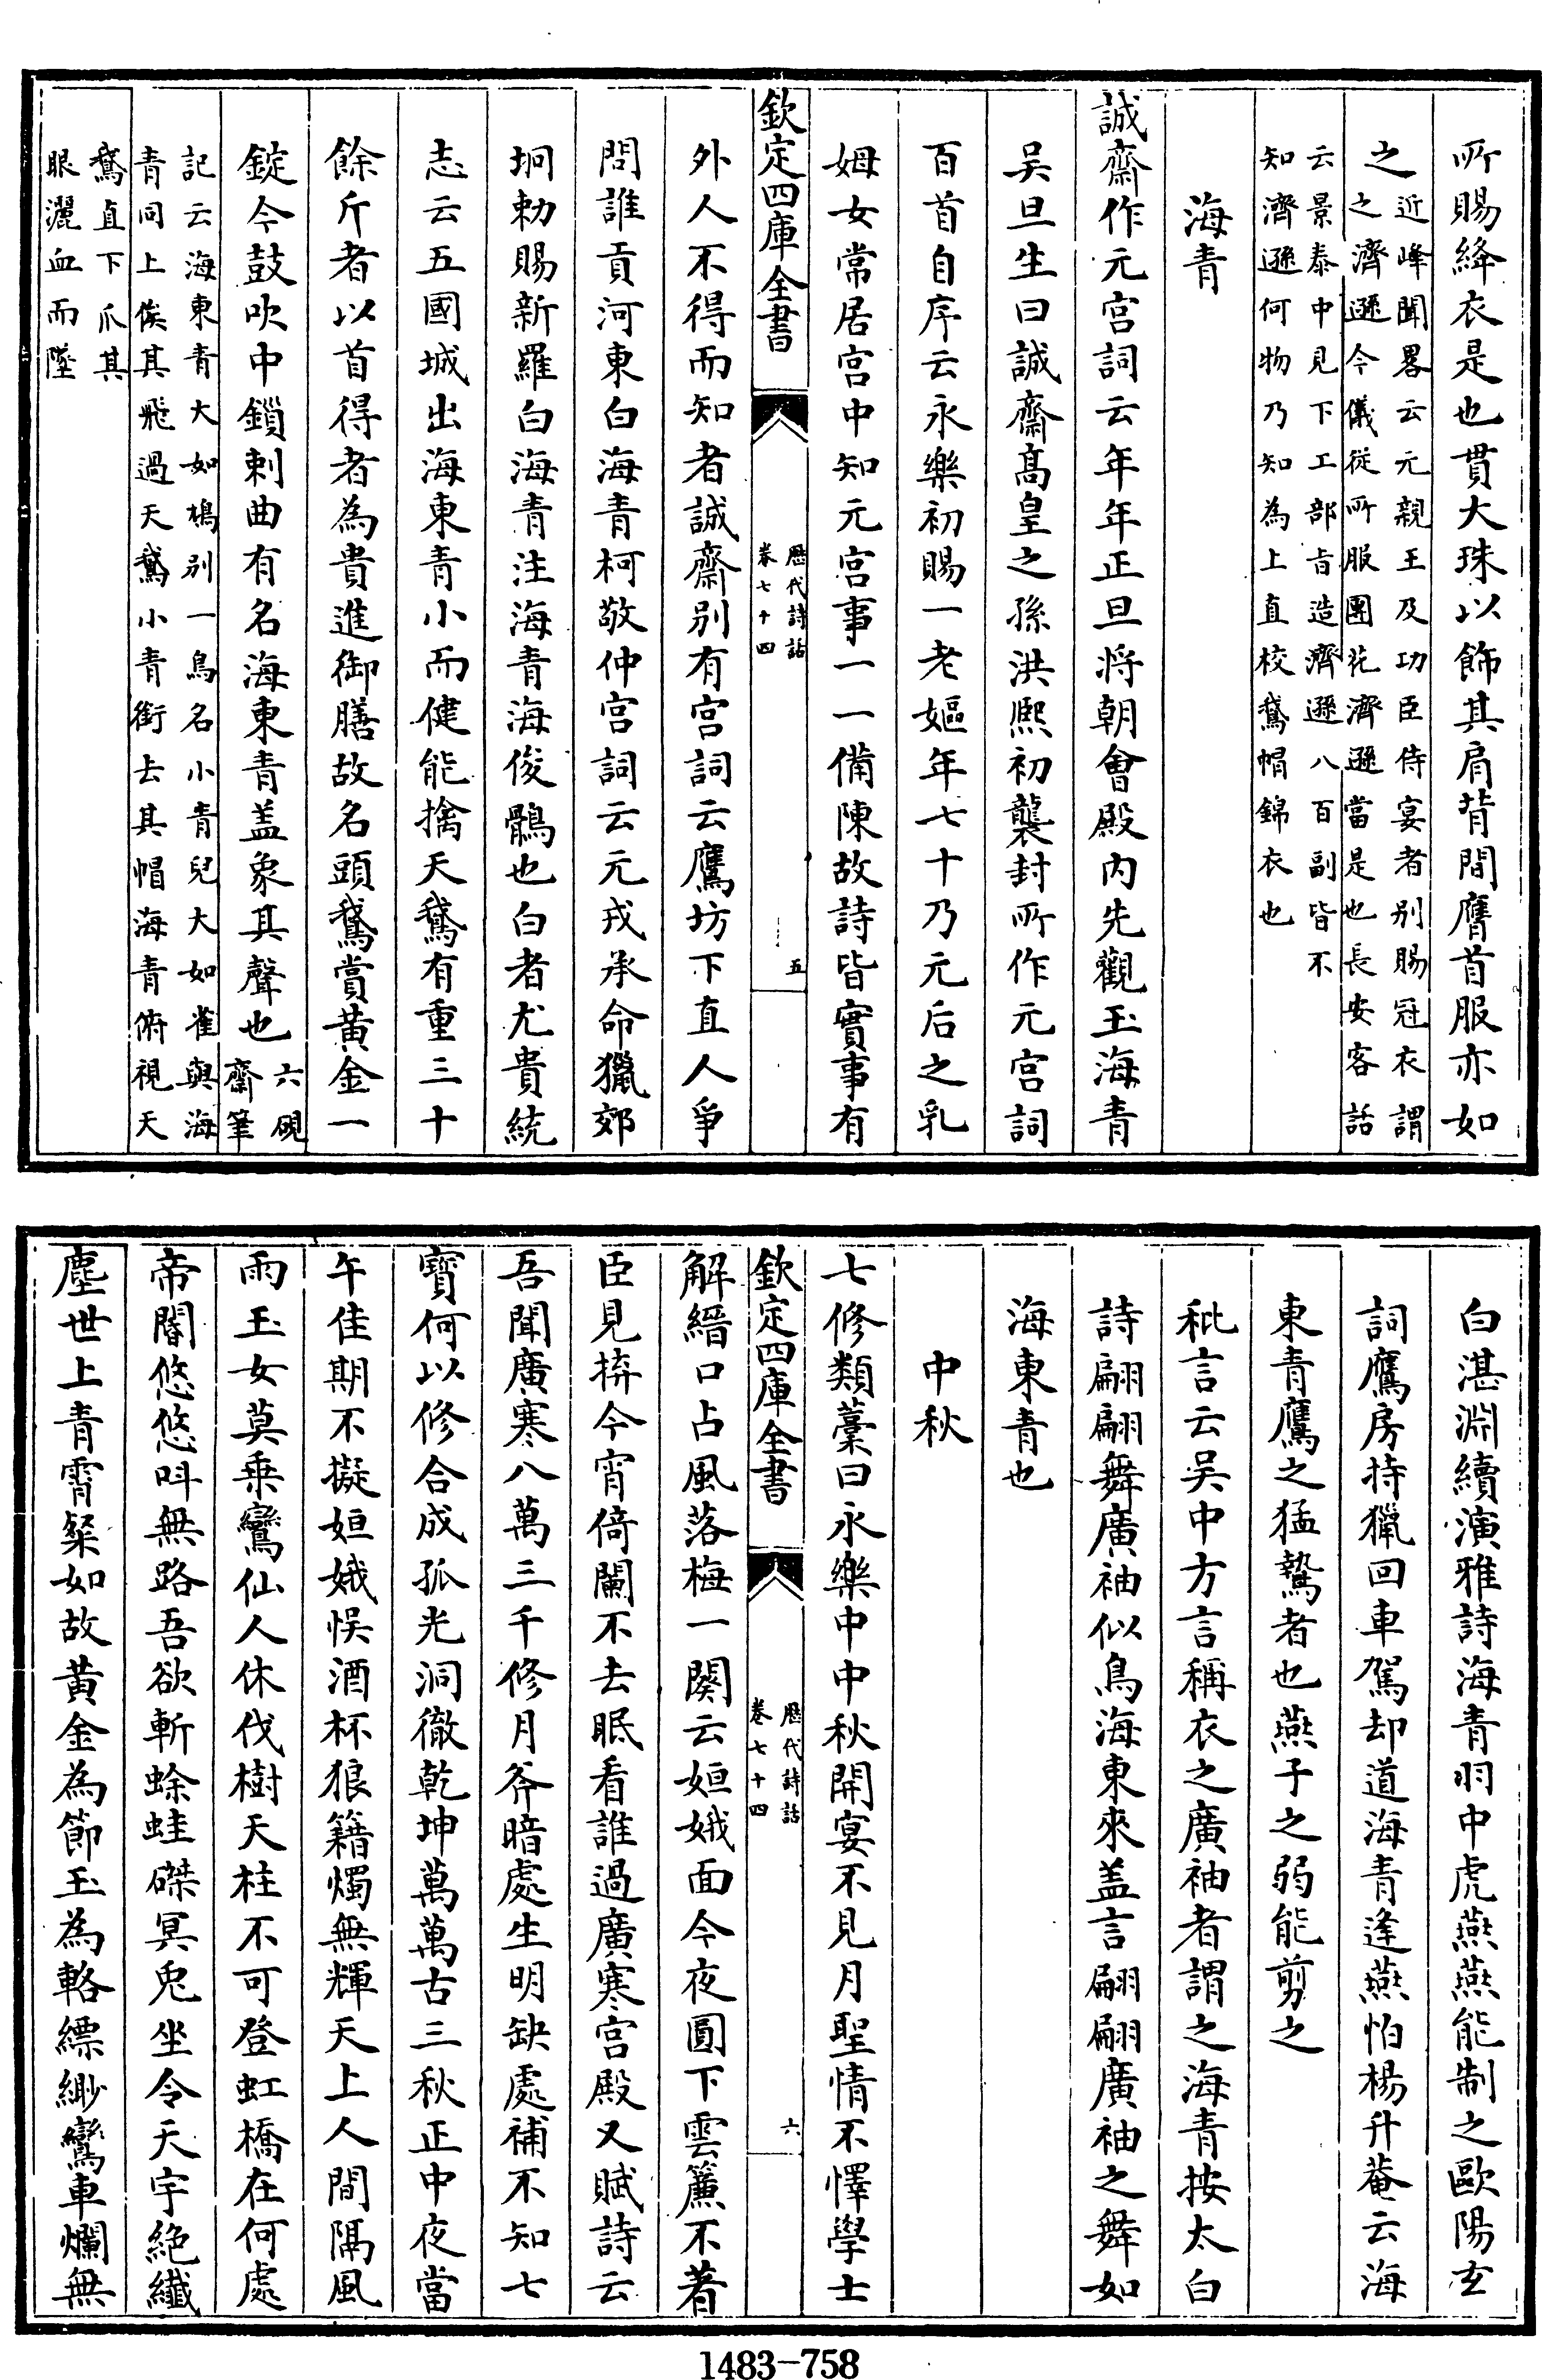 所賜絳衣是也貫大珠以飾其肩背間膺首服亦如
之近峰聞畧云元親王及功臣侍宴者别賜冠衣謂
之濟遜今儀從所服團花濟遜當是也長安客話
云景泰中見下工部旨造濟遜八百副皆不
知濟遜何物乃知為上直校鵞帽錦衣也
海青
誠齋作元宫詞云年年正旦将朝會殿内先觀玉海青
吴旦生曰誠齋髙皇之孫洪熙初襲封所作元宫詞
百首自序云永樂初賜一老嫗年七十乃元后之乳
姆女常居宫中知元宫事一一備陳故詩皆實事有
欽定四庫全書
歴代詩話
卷七十四
五
外人不得而知者誠齋别有宫詞云鷹坊下直人爭
問誰貢河東白海青柯敬仲宫詞云元戎承命獵郊
坰勅賜新羅白海青注海青海俊鶻也白者尤貴統
志云五國城出海東青小而健能擒天鵞有重三十
餘斤者以首得者為貴進御膳故名頭鵞賞黄金一
錠今鼓吹中鎖剌曲有名海東青盖象其聲也六硯
齋筆
記云海東青大如鳩别一鳥名小青兒大如雀與海
青同上俟其飛過天鵞小青銜去其帽海青俯視天
鵞直下爪其
眼灑血而墜
白湛淵續演雅詩海青羽中虎燕燕能制之歐陽玄
詞鷹房持獵回車駕却道海青逢燕怕楊升菴云海
東青鷹之猛鷙者也燕子之弱能剪之
秕言云吴中方言稱衣之廣袖者謂之海青按太白
詩翩翩舞廣袖似鳥海東來盖言翩翩廣袖之舞如
海東青也
中秋
七修類藁曰永樂中中秋開宴不見月聖情不懌學士
欽定四庫全書
歴代詩話
卷七十四
六
解縉口占風落梅一闋云姮娥面今夜圓下雲簾不着
臣見拚今宵倚闌不去眠看誰過廣寒宫殿又賦詩云
吾聞廣寒八萬三千修月斧暗處生明缺處補不知七
寶何以修合成孤光洞徹乾坤萬萬古三秋正中夜當
午佳期不擬姮娥悞酒杯狼籍燭無輝天上人間隔風
雨玉女莫乗鸞仙人休伐樹天柱不可登虹橋在何處
帝閽悠悠呌無路吾欲斬蜍蛙磔冥兎坐令天宇絶纎
塵世上青霄粲如故黄金為節玉為輅縹緲鸞車爛無
1483-758